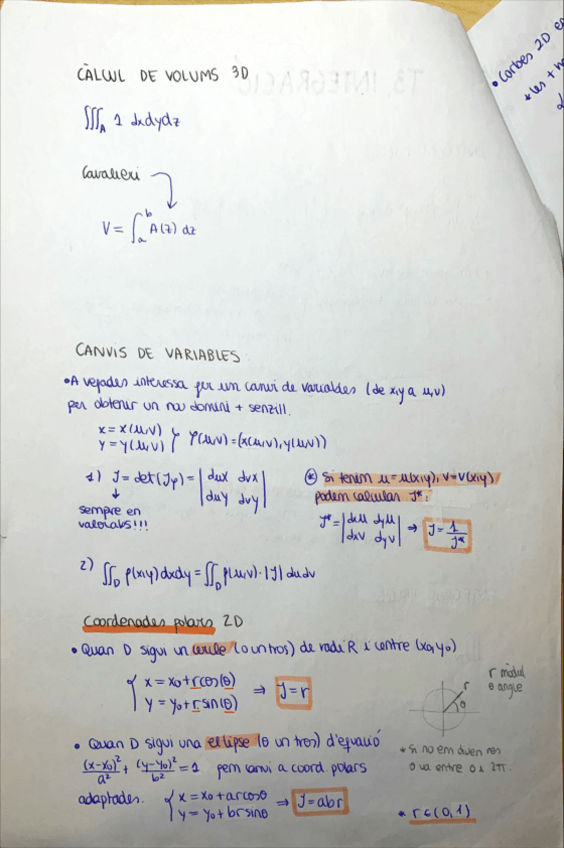 CÀLCUL DE VOLUMS 3D
∭_A 1 dxdydz
Cavalieri
V = ∫_a^b A(z) dz
CANVIS DE VARIABLES
• A vegades interessa fer un canvi de variables (de x,y a u,v)
per obtenir un nou domini + senzill.
x = x(u,v)
y = y(u,v) } φ(u,v) = (x(u,v), y(u,v))
1) J = det(Jφ) = | dux dvx |
| duy dvy |
↓
sempre en
valor abs!!!
(*) Si tenim u = u(x,y), v = v(x,y)
podem calcular J*:
J* = | dxu dyu |
| dxv dyv | ⇒ J = 1/J*
2) ∬_D f(x,y) dxdy = ∬_D f(u,v) · |J| dudv
Coordenades polars 2D
• Quan D sigui un cercle (o un tros) de radi R i centre (x0,y0)
{ x = x0 + r cos(θ)
y = y0 + r sin(θ) ⇒ J = r
r mòdul
θ angle
r
θ
• Quan D sigui una el·lipse (o un tros) d'equació
(x-x0)²/a² + (y-y0)²/b² = 1 fem canvi a coord polars
adaptades. { x = x0 + a r cosθ
y = y0 + b r sinθ ⇒ J = abr
* Si no em diuen res
θ va entre 0 i 2π.
* r ∈ (0,1)
• Corbes 2D